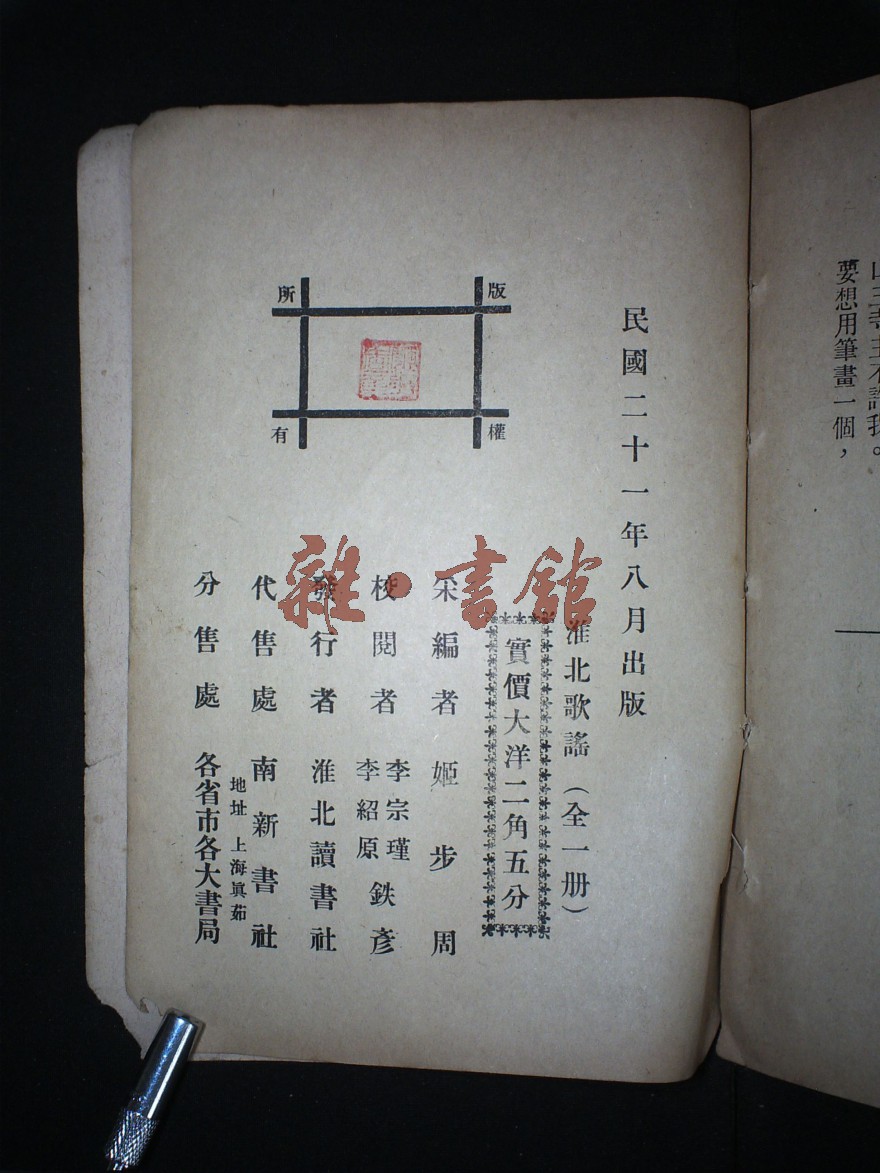 要想用筆畫一個，
民國二十一年八月出版
淮北歌謠（全一册）
實價大洋二角五分
采編者 姬步周
校閱者 李宗瑾 李紹原 鉄彥
發行者 淮北讀書社
代售處 南新書社
地址 上海眞茹
分售處 各省市各大書局
版權所有
雜·書館